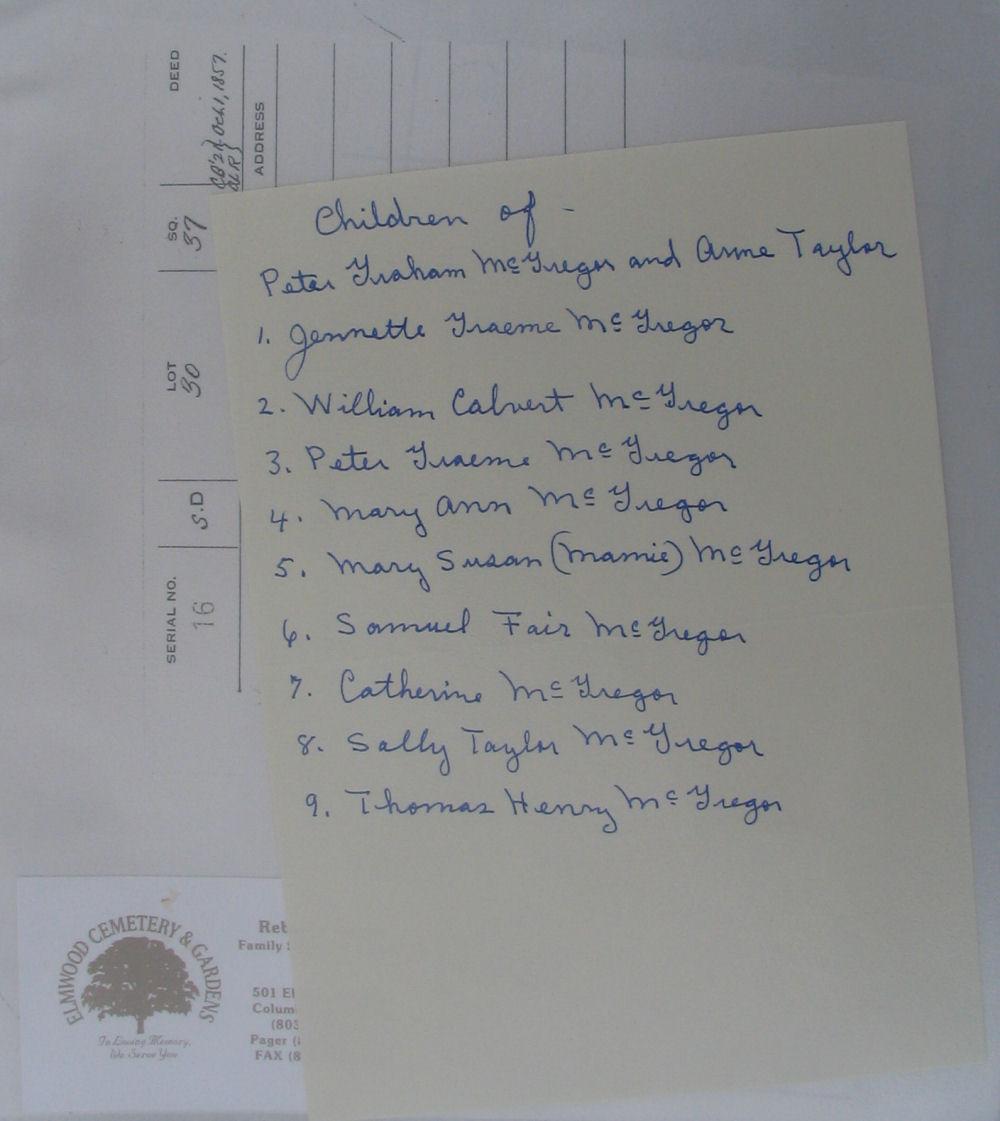 Children of -
Peter Graham McGregor and Anne Taylor
1. Jennette Graeme McGregor
2. William Calvert McGregor
3. Peter Graeme McGregor
4. Mary Ann McGregor
5. Mary Susan (Mamie) McGregor
6. Samuel Fair McGregor
7. Catherine McGregor
8. Sally Taylor McGregor
9. Thomas Henry McGregor
SERIAL NO.
16
S.D
LOT
30
SQ.
37
DEED
Oct. 1, 1857.
ADDRESS
ELMWOOD CEMETERY & GARDENS
In Loving Memory,
We Serve You
Family
501 El
Colum
(803
Pager (
FAX (8